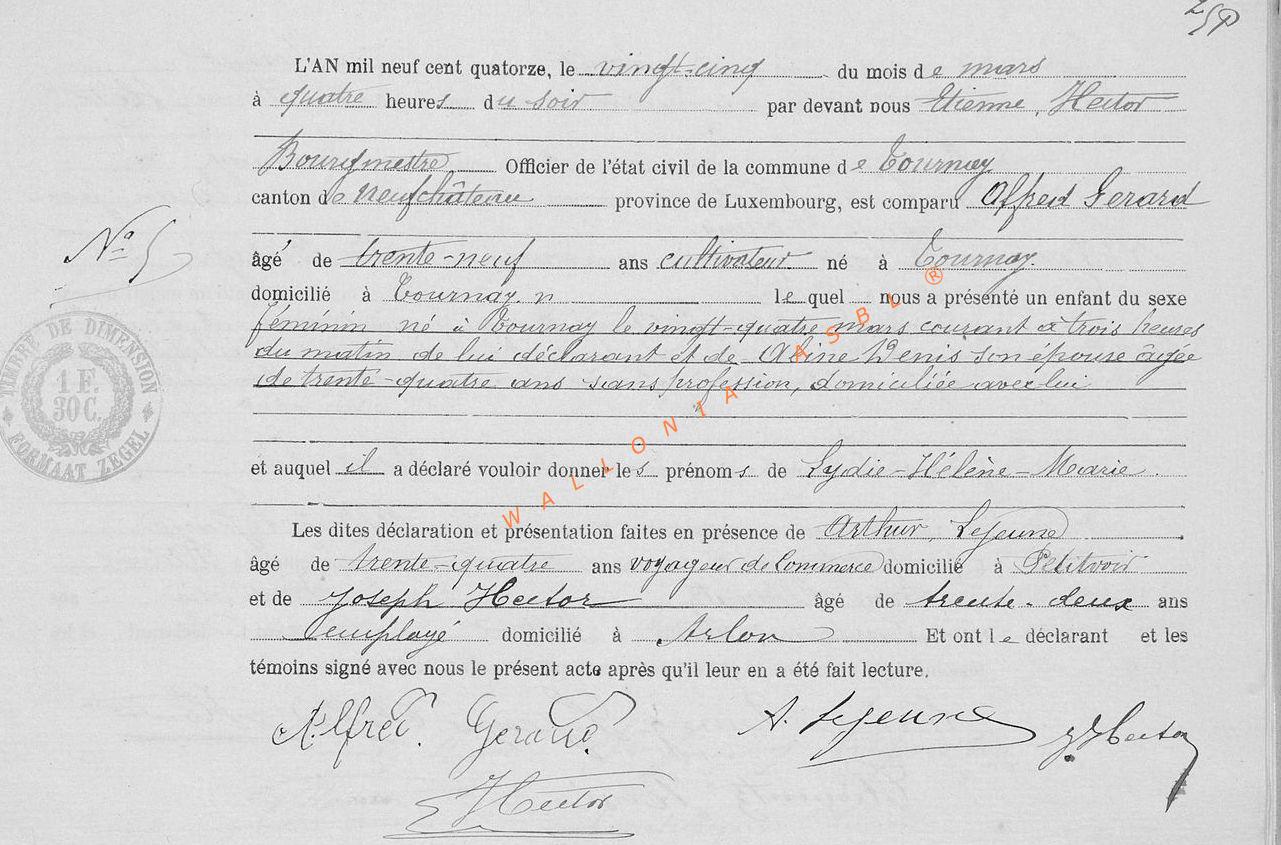 259
L'AN mil neuf cent quatorze, le vingt-cinq du mois de mars
à quatre heures du soir par devant nous Etienne, Hector
Bourgmestre Officier de l'état civil de la commune de Tournay
canton de Neufchâteau province de Luxembourg, est comparu Alfred Gerard
N° 5
âgé de trente-neuf ans cultivateur né à Tournay
domicilié à Tournay le quel nous a présenté un enfant du sexe
féminin né à Tournay le vingt-quatre mars courant à trois heures
du matin de lui déclarant et de Aline Denis son épouse âgée
de trente-quatre ans sans profession, domiciliée avec lui
et auquel il a déclaré vouloir donner les prénoms de Lydie-Hélène-Marie.
Les dites déclaration et présentation faites en présence de Arthur, Lejeune
âgé de trente-quatre ans voyageur de Commerce domicilié à Petitvoir
et de Joseph Hector âgé de trente-deux ans
employé domicilié à Arlon Et ont le déclarant et les
témoins signé avec nous le présent acte après qu'il leur en a été fait lecture.
Alfred. Gerard. A. Lejeune J Hector
Hector
TIMBRE DE DIMENSION
1 F.
30 C.
FORMAAT ZEGEL
WALLONIA ASBL ®